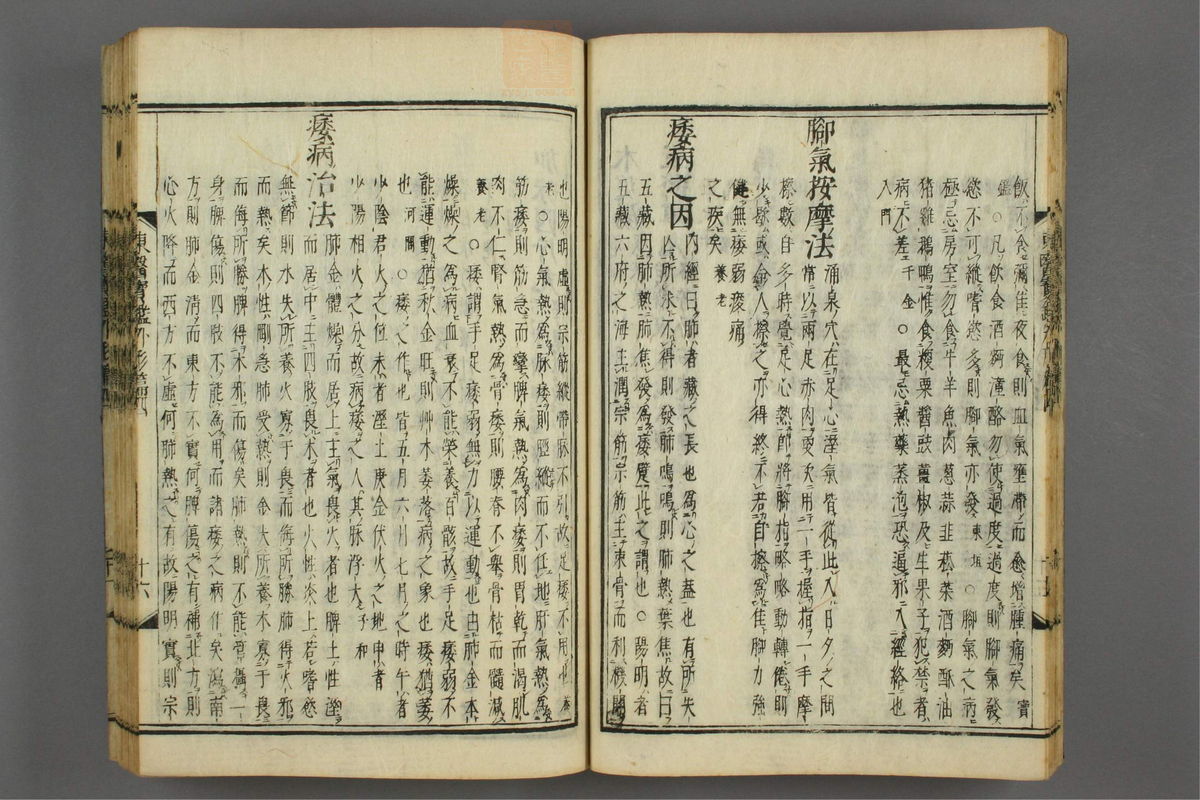 飯不食彌佳夜食則血氣壅滯而愈增腫痛矣寶
鑑○凡飲食酒麪潼酪勿使過度過度則脚氣發
慾不可縱嗜慾多則脚氣亦發東垣○脚氣之病
極忌房室勿食牛羊魚肉葱蒜韭菘菜酒麪酥油
猪雞鵝鴨惟食粳粟醬豉薑椒及生果子犯禁者
病不差千金○最忌熱藥蒸泡恐逼邪入經絡也
入門
脚氣按摩法 涌泉穴在足心濕氣皆從此入日夕之間
常以兩足赤肉更次用一手握指一手摩
擦數目多時覺足心熱即將脚指略略動轉倦則
少歇或令人擦之亦得終不若自擦爲佳脚力強
健無痿弱痠痛
之疾矣養老
痿病之因 內經曰肺者藏之長也爲心之蓋也有所失
亡所求不得則發肺鳴鳴則肺熱葉焦故曰
五藏因肺熱葉焦發爲痿躄此之謂也○陽明者
五藏六府之海主潤宗筋宗筋主束骨而利機關
也陽明虛則宗筋縱帶脉不引故足痿不用也內
經○心氣熱爲脉痿則脛縱而不任地肝氣熱爲
筋痿則筋急而攣脾氣熱爲肉痿則胃乾而渴肌
肉不仁腎氣熱爲骨痿則腰脊不擧骨枯而髓減
養老○痿謂手足痿弱無力以運動也由肺金本
燥燥之爲病血衰不能榮養百骸故手足痿弱不
能運動猶秋金旺則艸木萎落病之象也痿猶萎
也河間○痿之作也皆五月六月七月之時午者
少陰君火之位未者濕土庚金伏火之地申者
少陽相火之分故病痿之人其脉浮大子和
痿病治法 肺金體燥而居上主氣畏火者也脾土性濕
而居中主四肢畏木者也火性炎上若嗜慾
無節則水失所養火寡于畏而侮所勝肺得火邪
而熱矣木性剛急肺受熱則金失所養木寡于畏
而侮所勝脾得木邪而傷矣肺熱則不能管攝一
身脾傷則四肢不能爲用而諸痿之病作矣瀉南
方則肺金清而東方不實何脾傷之有補北方則
心火降而西方不虛何肺熱之有故陽明實則宗
東醫寶鑑外形篇四
十六